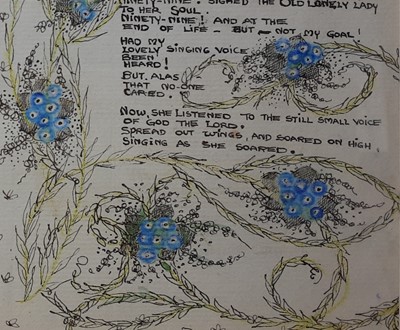 NINETY-NINE! SIGHED THE OLD LONELY LADY
TO HER SOUL.
NINETY-NINE! AND AT THE
END OF LIFE - BUT - NOT MY GOAL!
HAD MY
LOVELY SINGING VOICE
BEEN
HEARD!
BUT. ALAS
THAT NO-ONE
CARED.
NOW, SHE LISTENED TO THE STILL SMALL VOICE
OF GOD THE LORD.
SPREAD OUT WINGS, AND SOARED ON HIGH
SINGING AS SHE SOARED.